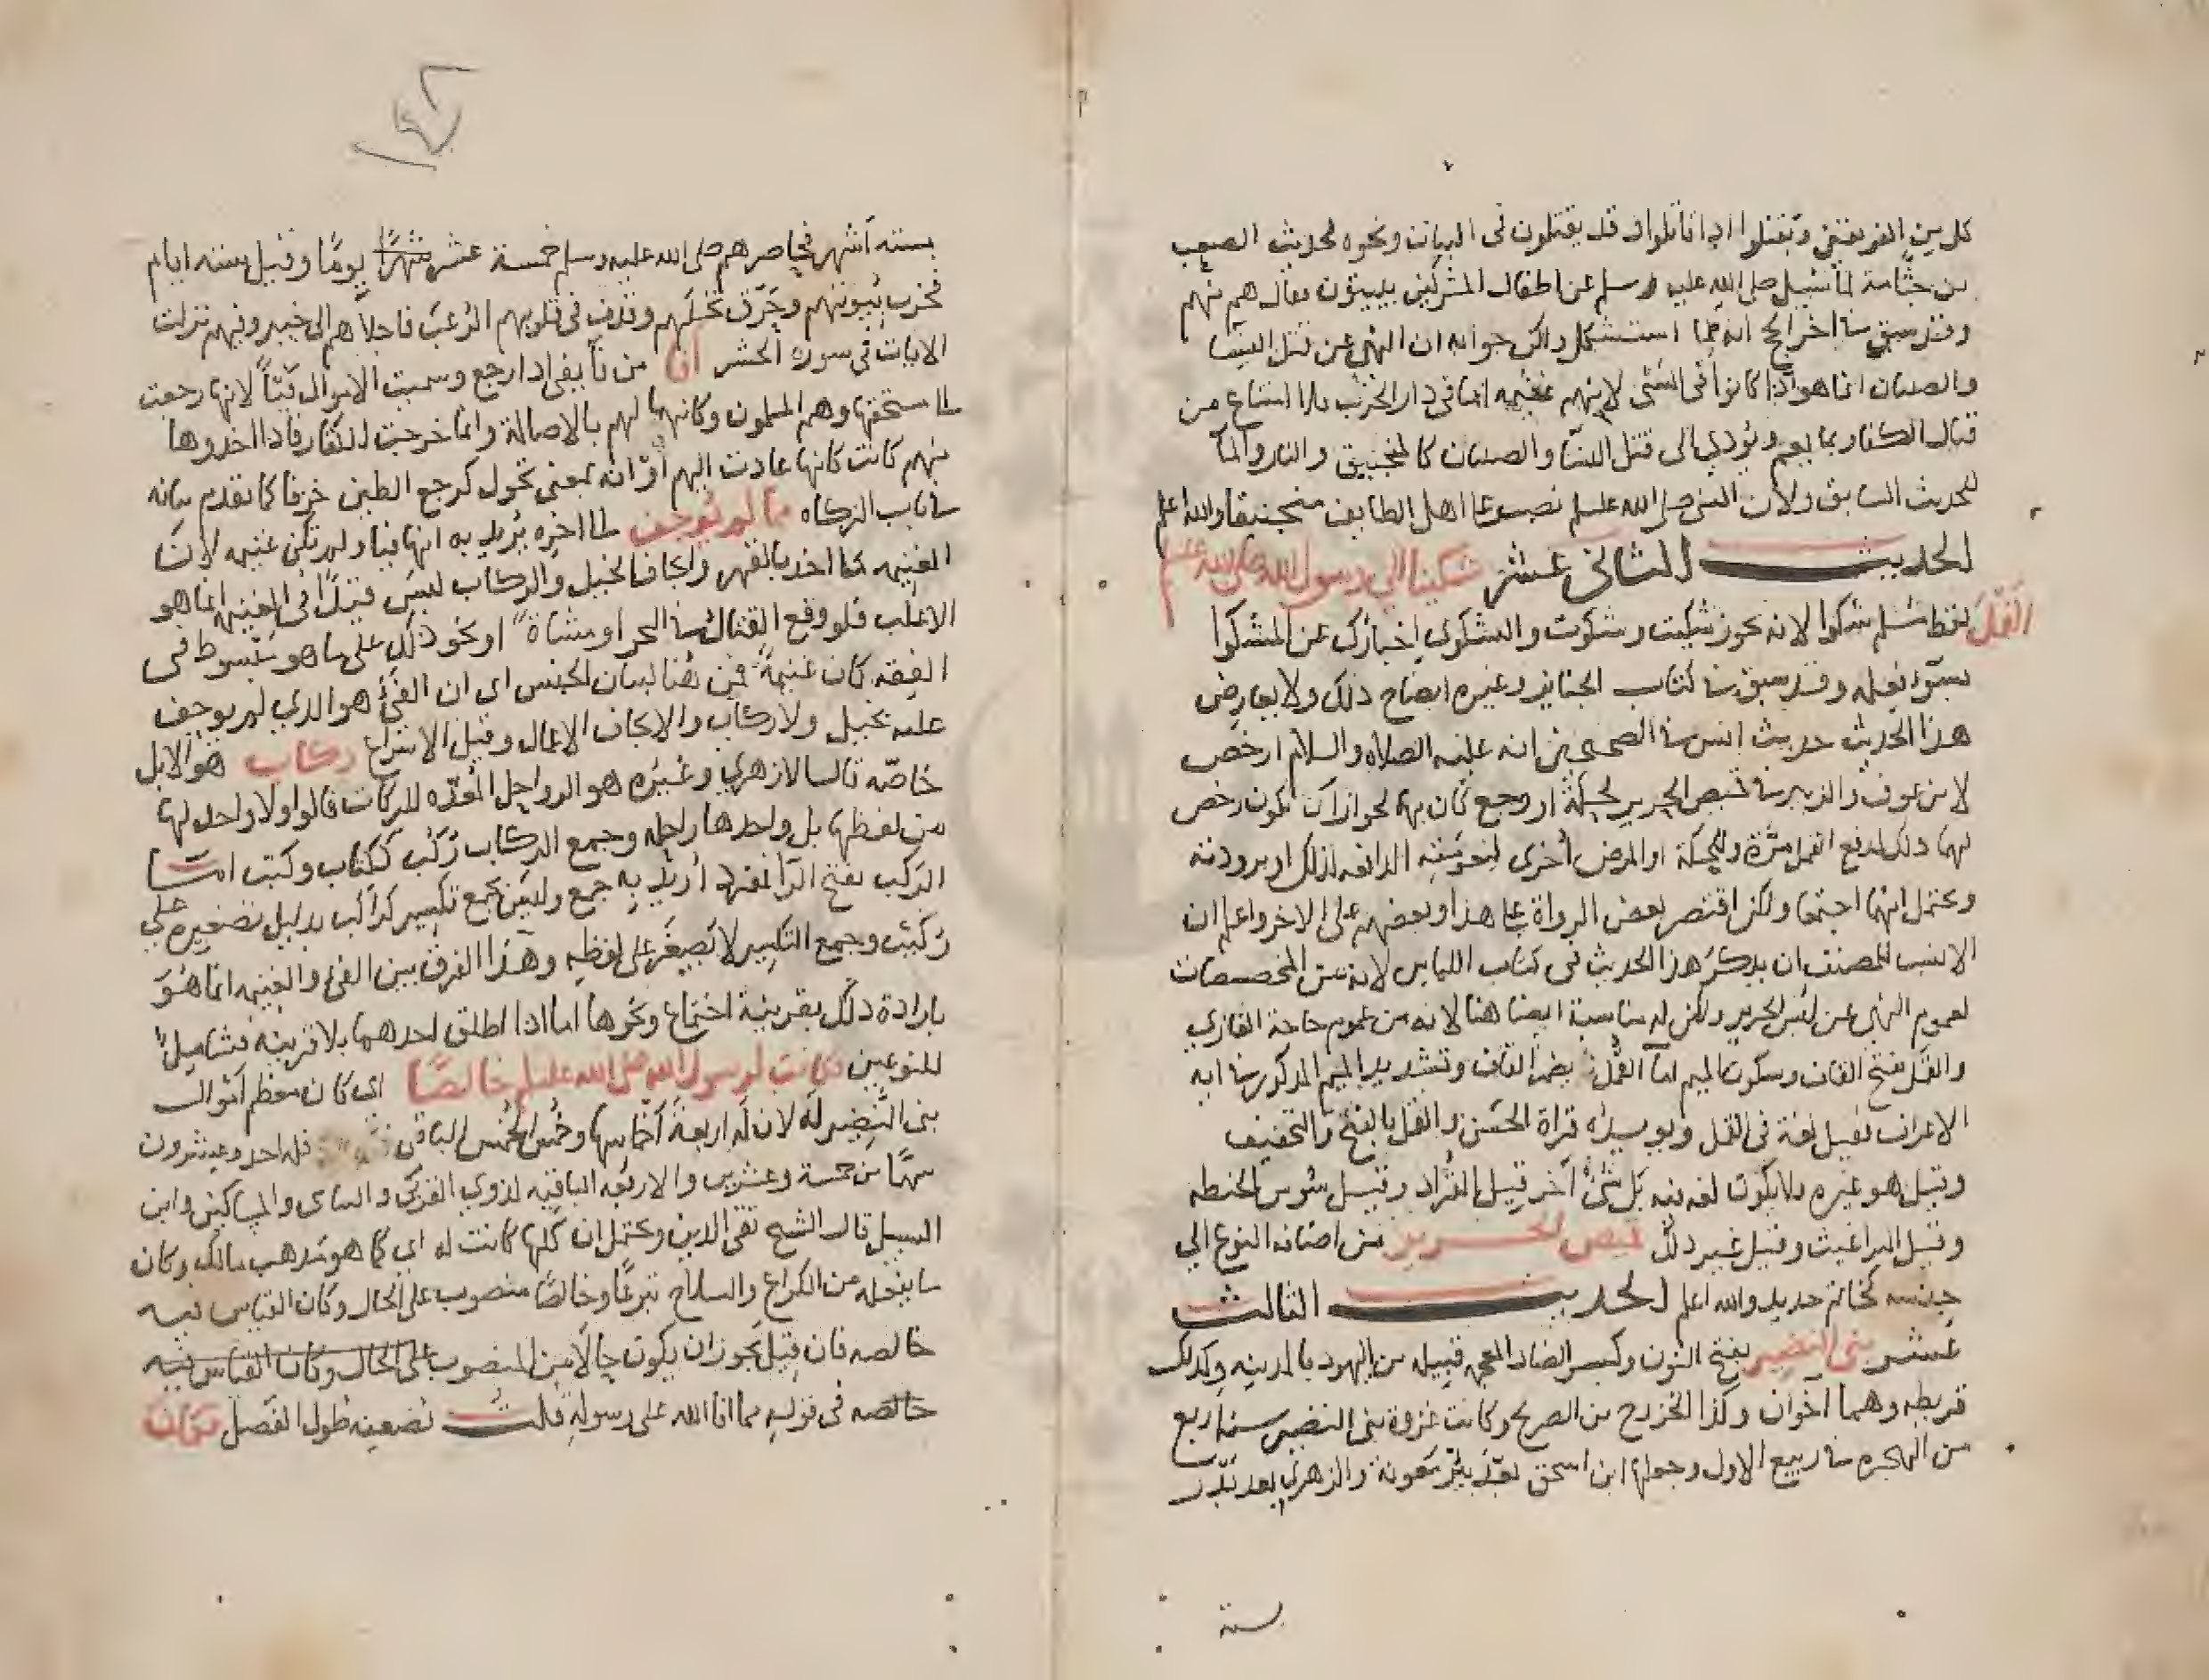 كل من الفريقين ويقتلوا اذا قاتلوا وقد يقتلون في البيات ونحوه لحديث الصعب
بن جثامة لما سئل صلى الله عليه وسلم عن اطفال المشركين يبيتون فقال هم منهم
وقد سبق في اخر الحج انه مما استشكل ولكن جوابه ان النهي عن قتل النسا
والصبيان انما هو اذا كانوا في السبي لانهم غنيمه اما في دار الحرب فلا امتناع من
قتال الكفار بما يعم ويؤدي الى قتل النسا والصبيان كالمنجنيق والنار والما
للحديث السابق ولان النبي صلى الله عليه وسلم نصب على اهل الطايف منجنيقا والله اعلم
الحديث الثاني عشر شكيا الى رسول الله صلى الله عليه وسلم
القمل لفظ مسلم شكوا لانه يجوز شكيت وشكوت والشكوى اخبارك عن المشكوا
بسوء فعله وقد سبق في كتاب الجنايز وغيره ايضاح ذلك ولا يعارض
هذا الحديث حديث انس في الصحيحين انه عليه الصلاه والسلام ارخص
لابن عوف والزبير في قميص الحرير لحكة او وجع كان بهما لجواز ان يكون رخص
لهما ذلك لدفع القمل مرة وللحكة او المرض اخرى لنعومته الدافعه لذلك او برودته
ويحتمل انهما اجتمعا ولكن اقتصر بعض الرواة على هذا وبعضهم على الاخر واعلم ان
الانسب للمصنف ان يذكر هذا الحديث في كتاب اللباس لانه من المخصصات
لعموم النهي عن لبس الحرير ولكن له مناسبة ايضا هنا لانه من عموم حاجة الغازي
والقمل بفتح القاف وسكون الميم اما القمل بضم القاف وتشديد الميم المذكور في اية
الاعراف فقيل لغة في القمل ويويده قراة الحسن والقمل بالفتح والتخفيف
وقيل هو غيره فلا يكون لغه فيه بل شيء آخر قيل القراد وقيل سوس الحنطه
وقيل البراغيث وقيل غير ذلك قميص الحرير من اضافة النوع الى
جنسه كخاتم حديد والله اعلم الحديث الثالث
عشر بني النضير بفتح النون وكسر الضاد المعجمه قبيله من اليهود بالمدينه وكذلك
قريظه وهما آخوان وكذا الخزرج من الصريح وكانت غزوة بني النضير سنة اربع
من الهجره في ربيع الاول وجعلها ابن اسحق بعد بئر معونة والزهري بعد بدر
بستة
بسته آشهر فحاصرهم صلى الله عليه وسلم خمسة عشر شهرًا يومًا وقيل سته ايام
فخرب بيوتهم وحرق نخلهم وقذف في قلوبهم الرعب فاجلاهم الى خيبر وفيهم نزلت
الايات في سوره الحشر افا من فآ يفي اذا رجع وسميت الاموال فيئًا لانها رجعت
لمستحقها وهم المسلمون وكانها لهم بالاصالة وانما خرجت للكفار فاذا اخذوها
منهم كانت كانها عادت اليهم او انه بمعنى تحول كرجع الطين خزفا كما تقدم بيانه
في باب الزكاه مما لم يوجف الى اخره يريد به انها فيئا ولم تكن غنيمه لان
الغنيمه ما اخذ بالقهر وايجاف الخيل والركاب ليس قيدًا في الغنيمه انما هو
الاغلب فلو وقع القتال في البحر او مشاة او نحو ذلك على ما هو مبسوط في
الفقه كان غنيمة فمن هنا لبيان الجنس اى ان الفيء هو الذي لم يوجف
عليه بخيل ولا ركاب والايجاف الاعمال وقيل الاسراع ركاب هو الابل
خاصه قال الازهري وغيره هو الرواحل المعدّه للركاب قالوا ولا واحد لها
من لفظها بل واحدها راحله وجمع الركاب ركب ككتاب وكتب امـا
الركب بفتح الرآ فمفرد اريد به جمع وليس بجمع تكسير كراكب بدليل تصغيره على
ركيب وجمع التكسير لا يصغر على لفظه وهذا الفرق بين الفئ والغنيمه انما هو
بارادة ذلك بقرينة اجتماع ونحوها اما اذا اطلق احدهما بلا قرينه فشامل
للنوعين فكانت لرسول الله صلى الله عليه وسلم خالصًا اى كان معظم اموال
بنى النضير له لان له اربعة اخماسها وخمس الخمس الباقي فله احد وعشرون
سهمًا من خمسة وعشرين والاربعه الباقيه لذوي القربى واليتامى والمساكين وابن
السبيل قال الشيخ تقي الدين ويحتمل ان كلها كانت له اي كما هو مذهب مالك وكان
ما يجعله من الكراع والسلاح تبرعًا وخالصًا منصوب على الحال وكان القياس فيه
خالصه فان قيل يجوز ان يكون حالا من المنصوب على الحال وكان القياس فيه
خالصه في قوله مما افا الله على رسوله قلت تضعيفه طول الفصل وكان